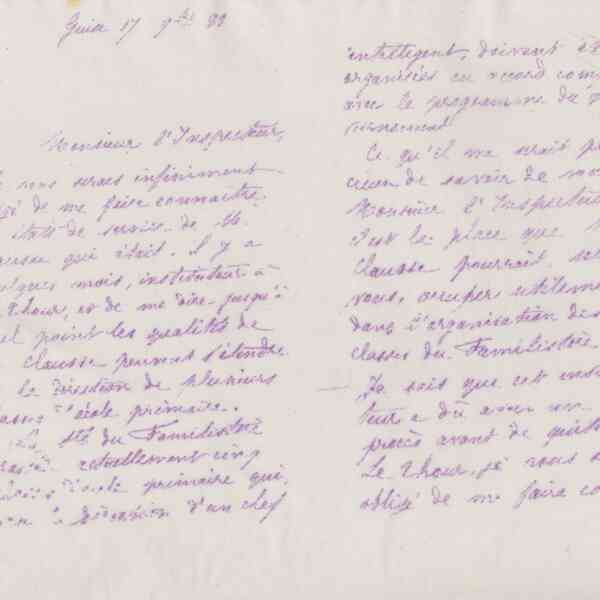 Guise 17 9bre 88
Monsieur l'Inspecteur,
vous serais infiniment
de me faire connaître
de service de M.
qui était, il y a
quelques mois, instituteur à
Thour, et de me dire jusqu'à
el point les qualités de
Clausse peuvent s'étendre
la Direction de plusieurs
classes d'école primaire.
La Sté du Familistère
actuellement cinq
primaire qui,
la direction d'un chef
intelligent, doivent
organisées en accord com
avec le programme du
vernement
Ce qu'il me serait p
cieux de savoir de
Monsieur l'Inspecteu
c'est la place que
Clausse pourrait,
vous, occuper utileme
dans l'organisation des
classes du Familistère
Je sais que cet insti
teur a dû avoir un
procès avant de quitt
Le Thour, je vous
obligé de me faire co